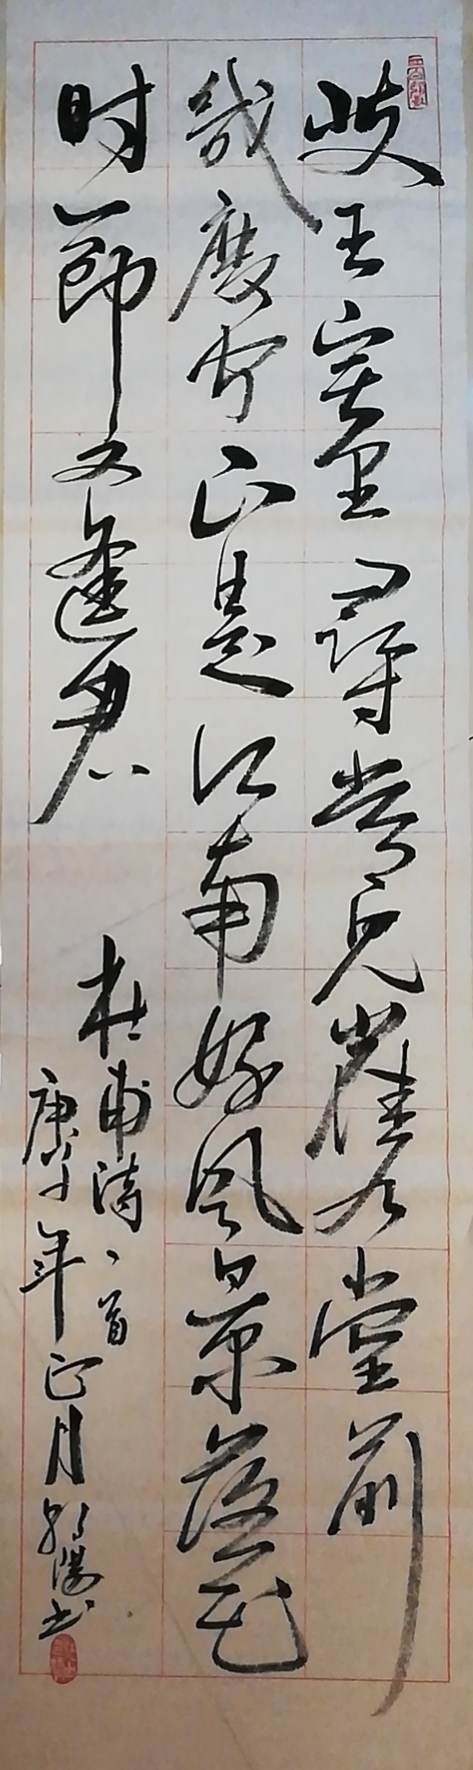 岐王宅里寻常见崔九堂前
几度闻正是江南好风景落花
时节又逢君
杜甫诗一首
庚子年正月
书